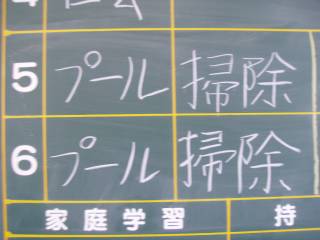 5 プール掃除
6 プール掃除
家庭学習 持